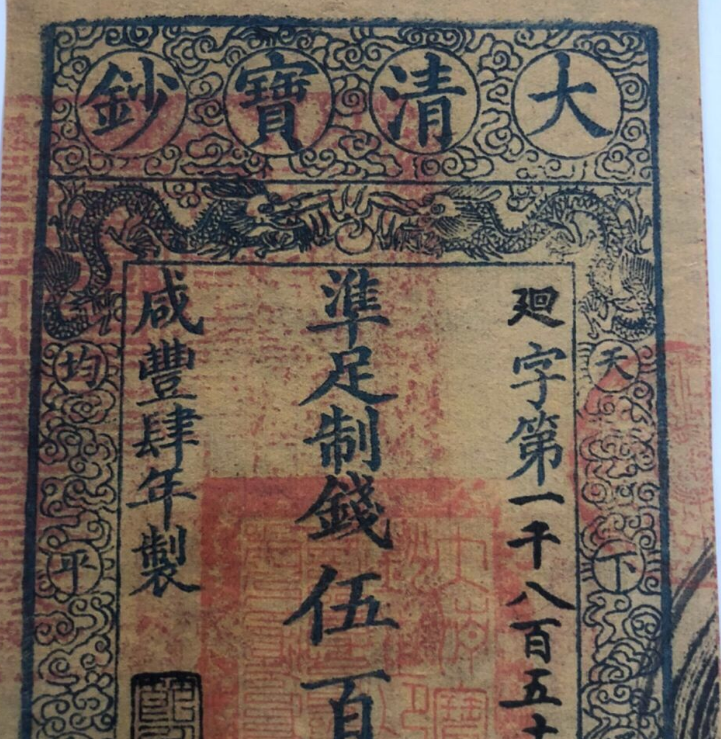 大清寶鈔
天下
廻字第一千八百五十
準足制錢伍百
咸豐肆年製
均平